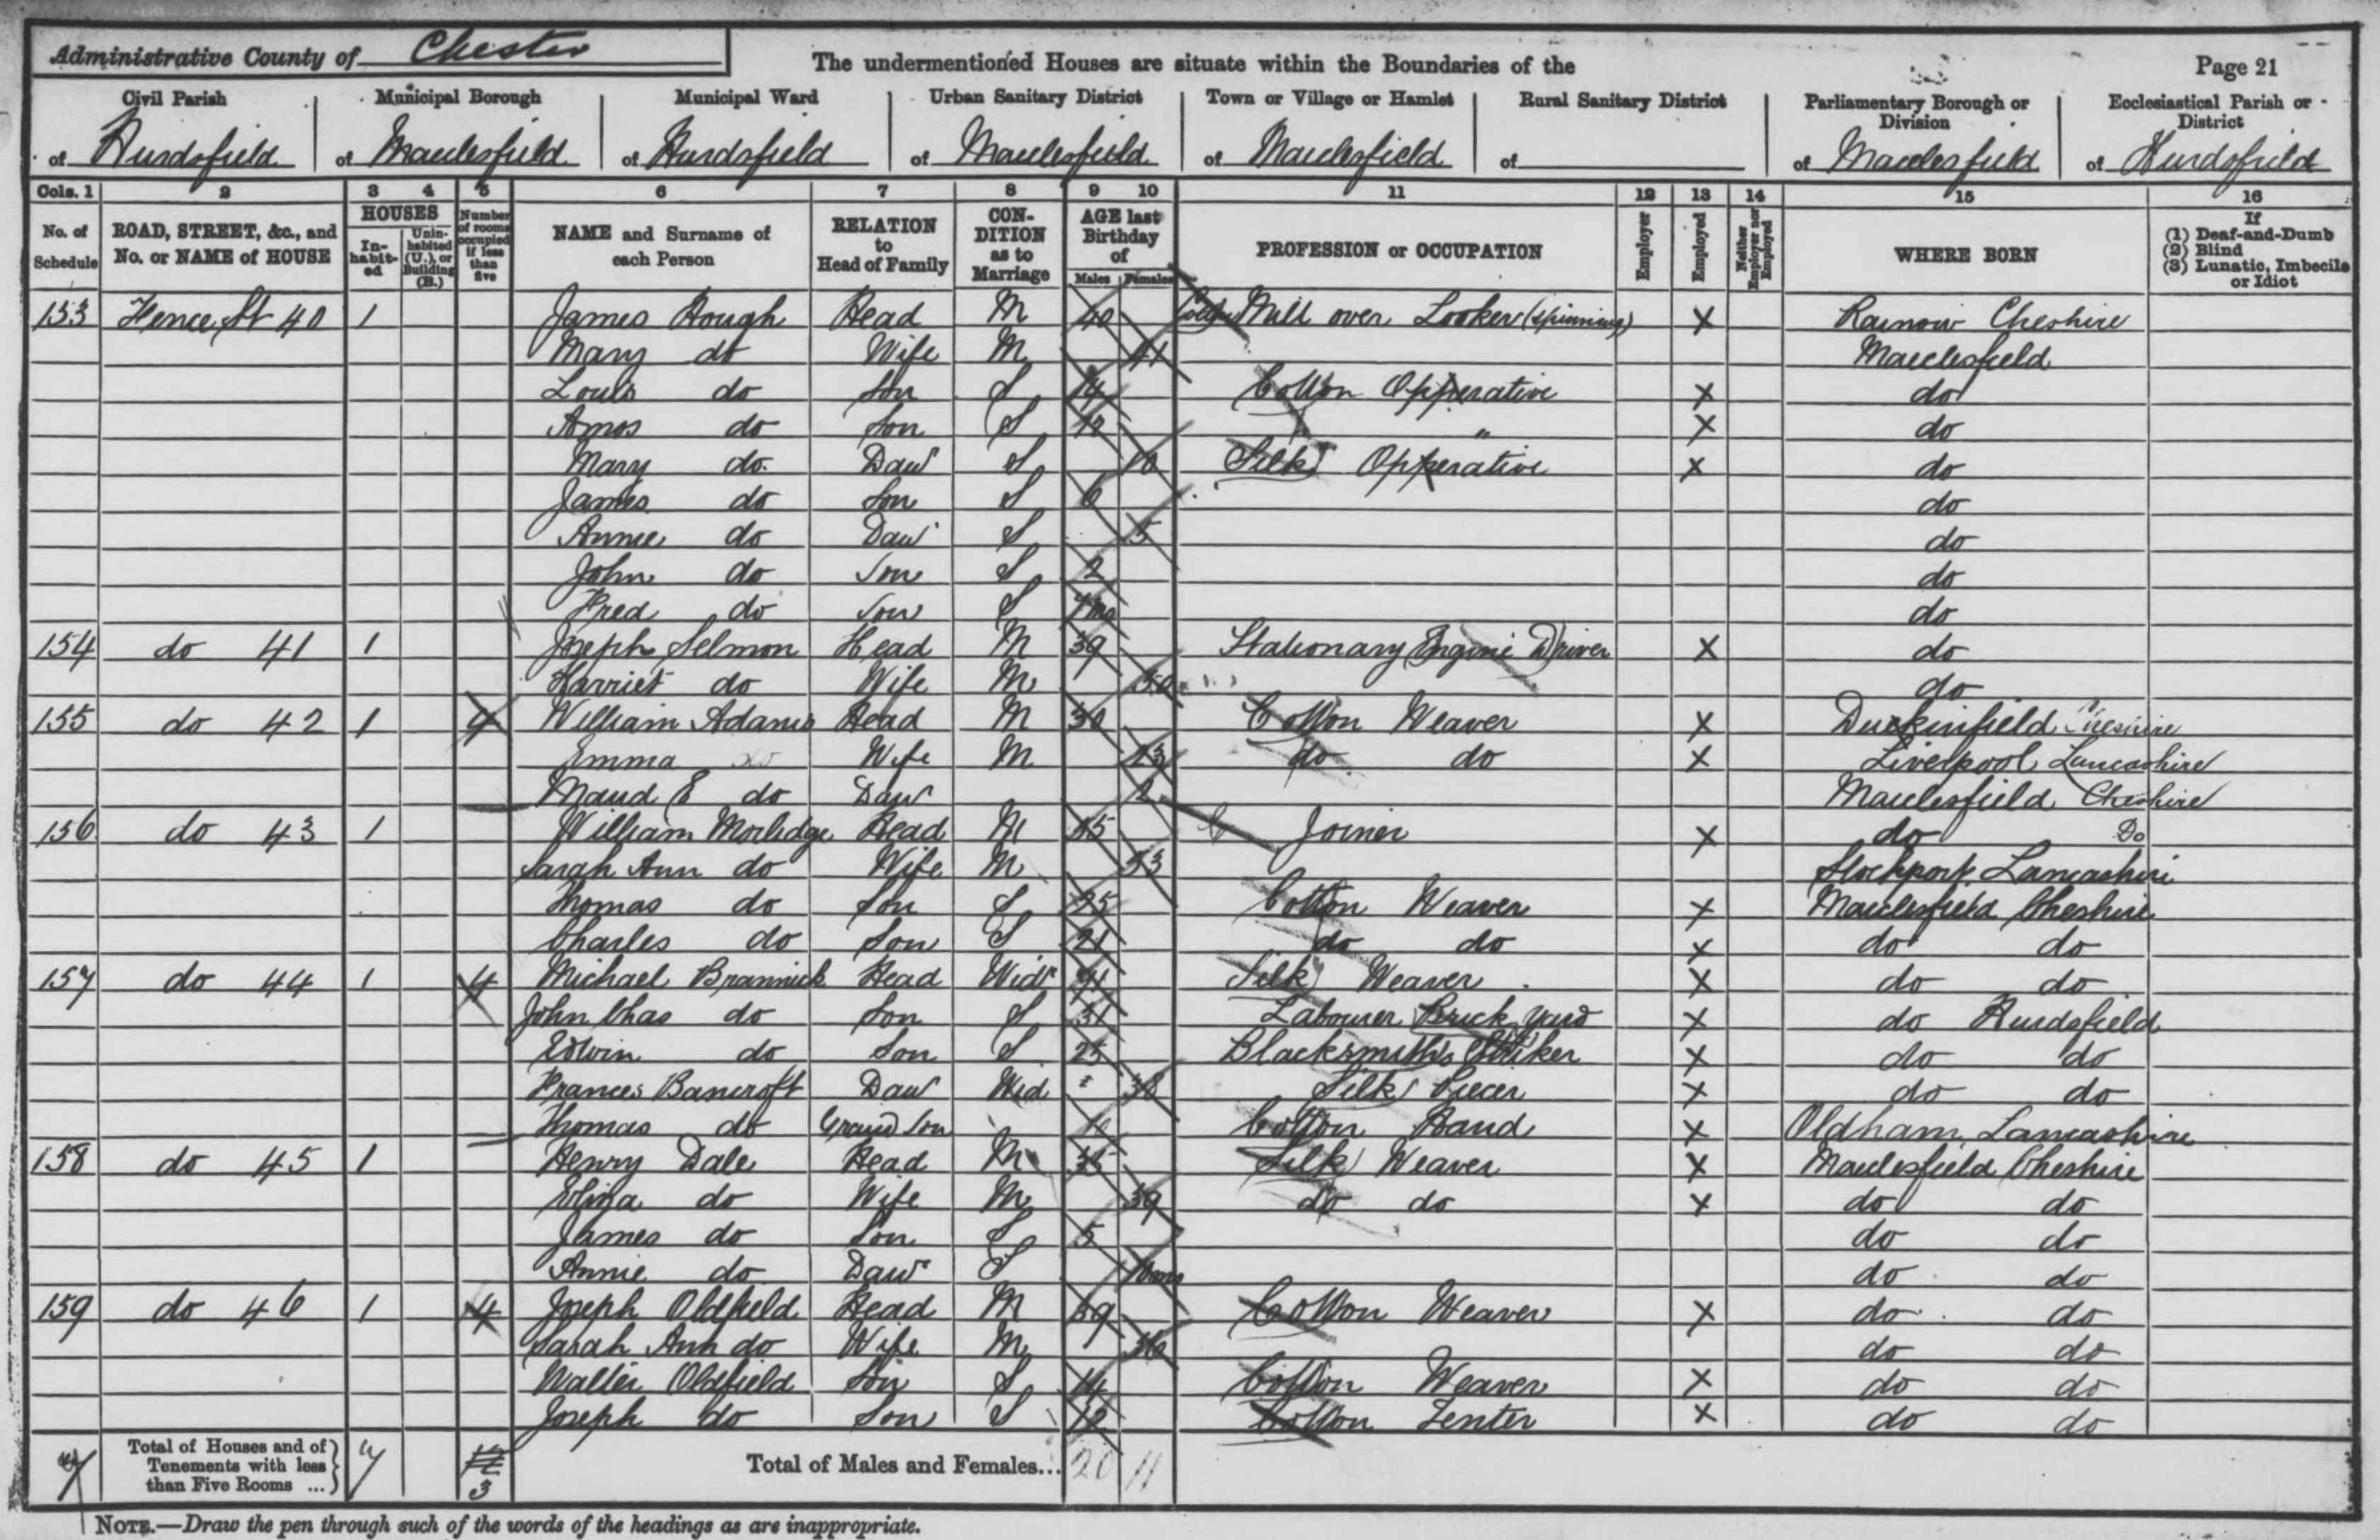 Administrative County of Chester
The undermentioned Houses are situate within the Boundaries of the
Page 21
Civil Parish of Hurdsfield
Municipal Borough of Macclesfield
Municipal Ward of Hurdsfield
Urban Sanitary District of Macclesfield
Town or Village or Hamlet of Macclesfield
Rural Sanitary District of
Parliamentary Borough or Division of Macclesfield
Ecclesiastical Parish or District of Hurdsfield
Cols. 1 2 3 4 5 6 7 8 9 10 11 12 13 14 15 16
No. of Schedule
ROAD, STREET, &c., and No. or NAME of HOUSE
HOUSES
In-habit-ed
Unin-habited (U.), or Building (B.)
Number of rooms occupied if less than five
NAME and Surname of each Person
RELATION to Head of Family
CON-DITION as to Marriage
AGE last Birthday of
Males Females
PROFESSION or OCCUPATION
Employer
Employed
Neither Employer nor Employed
WHERE BORN
If
(1) Deaf-and-Dumb
(2) Blind
(3) Lunatic, Imbecile or Idiot
153 Fence St 40 1 James Hough Head M 40 Cotton Mill over Looker (spinning) X Rainow Cheshire
Mary do Wife M 41 Macclesfield
Louis do Son S 14 Cotton Opperative X do
Amos do Son S 12 " X do
Mary do Daur S 10 Silk Opperative X do
James do Son S 6 do
Annie do Daur S 5 do
John do Son S 2 do
Fred do Son S do
154 do 41 1 Joseph Selmon Head M 39 Stationary Engine Driver X do
Harriet do Wife M 50 do
155 do 42 1 4 William Adams Head M 30 Cotton Weaver X Duckinfield Cheshire
Emma do Wife M 23 do do X Liverpool Lancashire
Maud E do Daur 2 Macclesfield Cheshire
156 do 43 1 William Morlidge Head M Joiner X do Do
Sarah Ann do Wife M 53 Stockport Lancashire
Thomas do Son S 25 Cotton Weaver X Macclesfield Cheshire
Charles do Son S 21 do do X do do
157 do 44 1 4 Michael Brannick Head Widr Silk Weaver X do do
John Chas do Son S 31 Labourer Brick yard X do Hurdsfield
Edwin do Son S 25 Blacksmiths Striker X do do
Frances Bancroft Daur Wid 38 Silk Piecer X do do
Thomas do Grand Son Cotton Hand X Oldham Lancashire
158 do 45 1 Henry Dale Head M 35 Silk Weaver X Macclesfield Cheshire
Eliza do Wife M 39 do do X do do
James do Son S 5 do do
Annie do Daur S 10mo do do
159 do 46 1 4 Joseph Oldfield Head M Cotton Weaver X do do
Sarah Ann do Wife M do do
Walter Oldfield Son S 14 Cotton Weaver X do do
Joseph do Son S 12 Cotton Tenter X do do
7 Total of Houses and of Tenements with less than Five Rooms ... 7 3 Total of Males and Females... 20 11
NOTE.—Draw the pen through such of the words of the headings as are inappropriate.